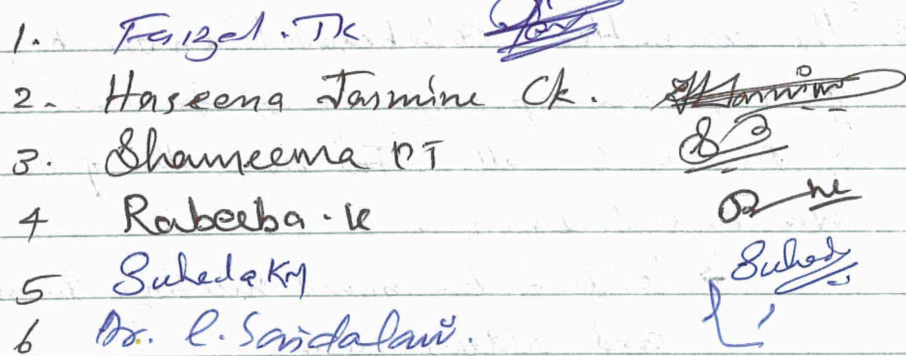 1. Faizal. TK
2. Haseena Jasmine Ck.
3. Shameema PT
4 Rabeeba. K
5 Suheda KM Suhed
6 Dr. C. Saidalavi.